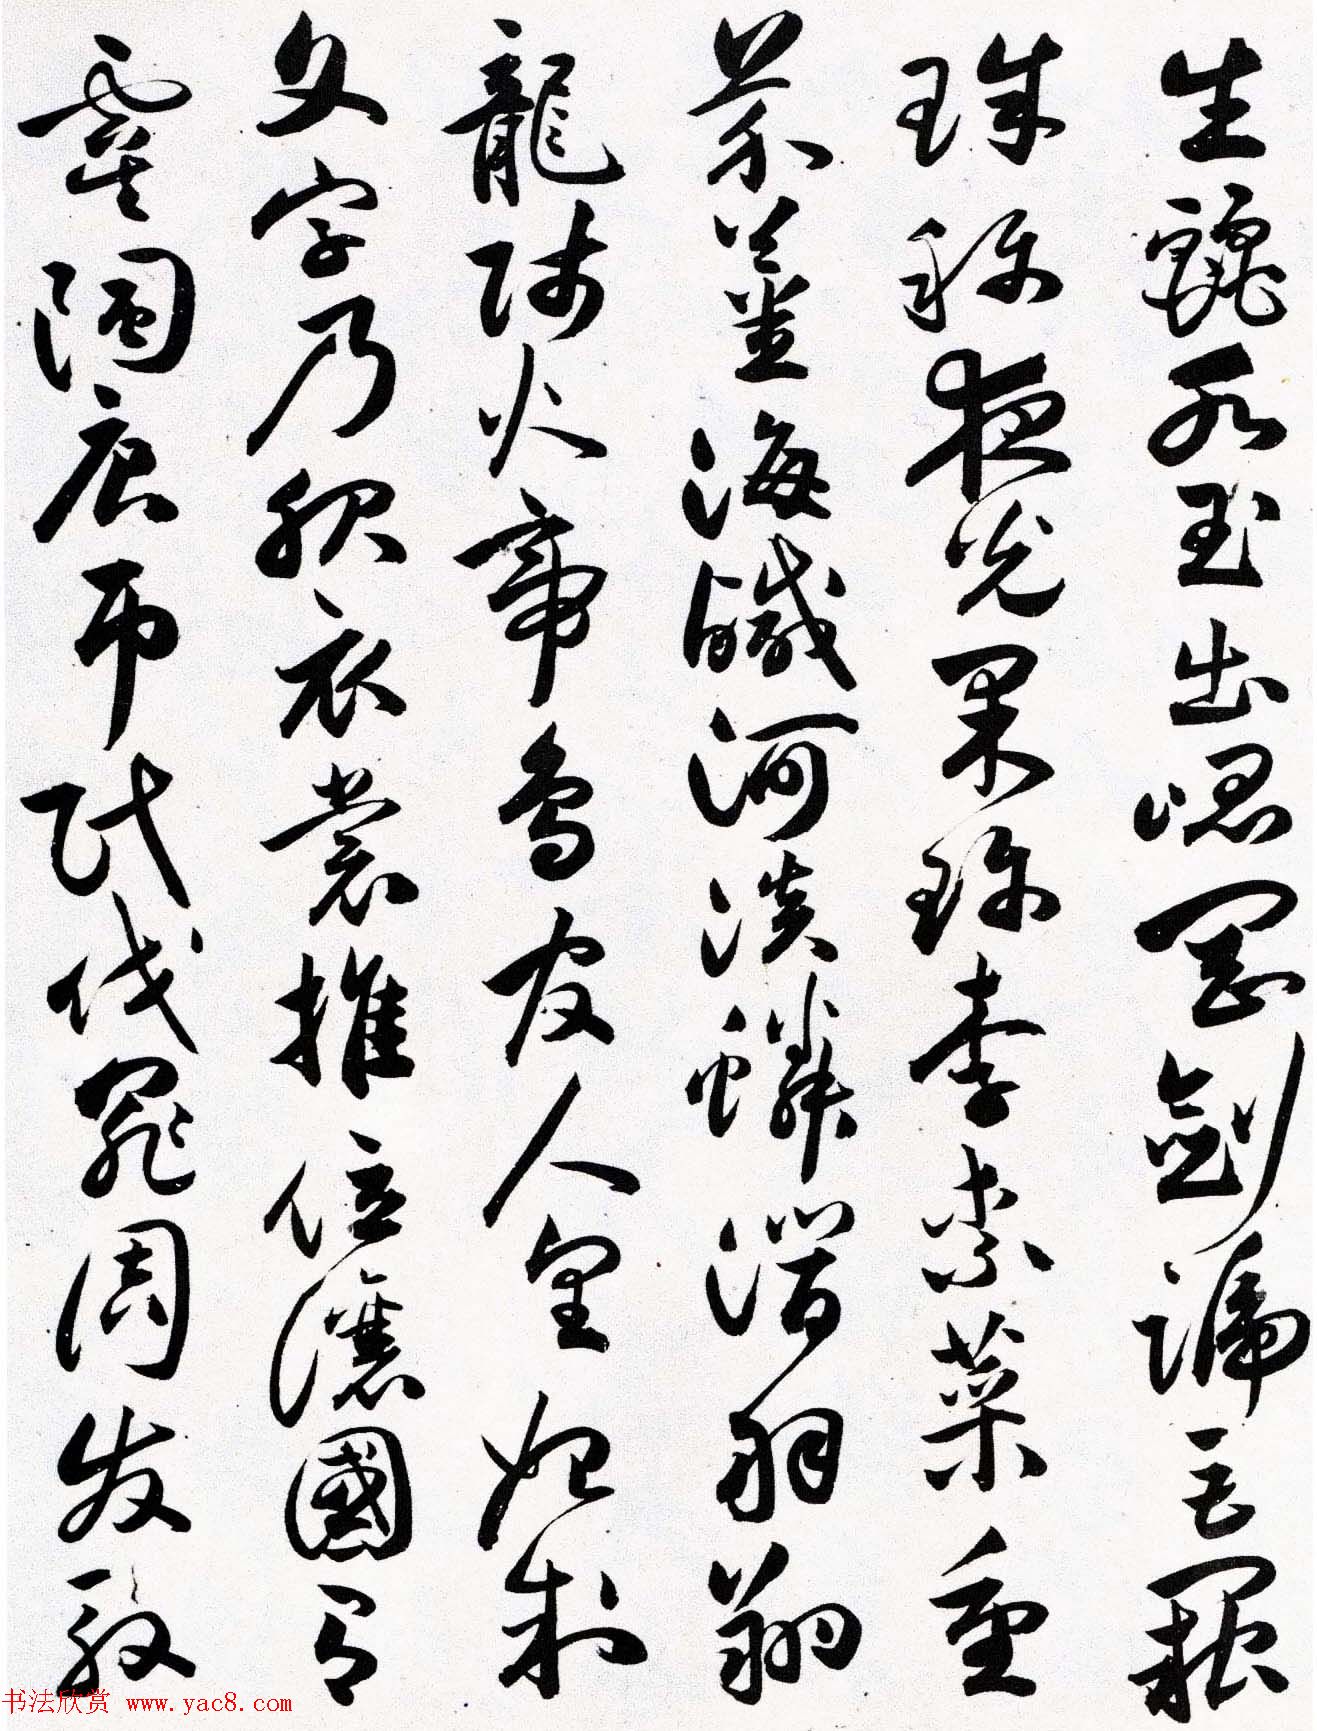 生麗水玉出崐岡劍號巨闕
珠稱夜光果珍李柰菜重
芥薑海鹹河淡鱗潛羽翔
龍師火帝鳥官人皇始制
文字乃服衣裳推位讓國有
虞陶唐弔民伐罪周發殷
书法欣赏 www.yac8.com